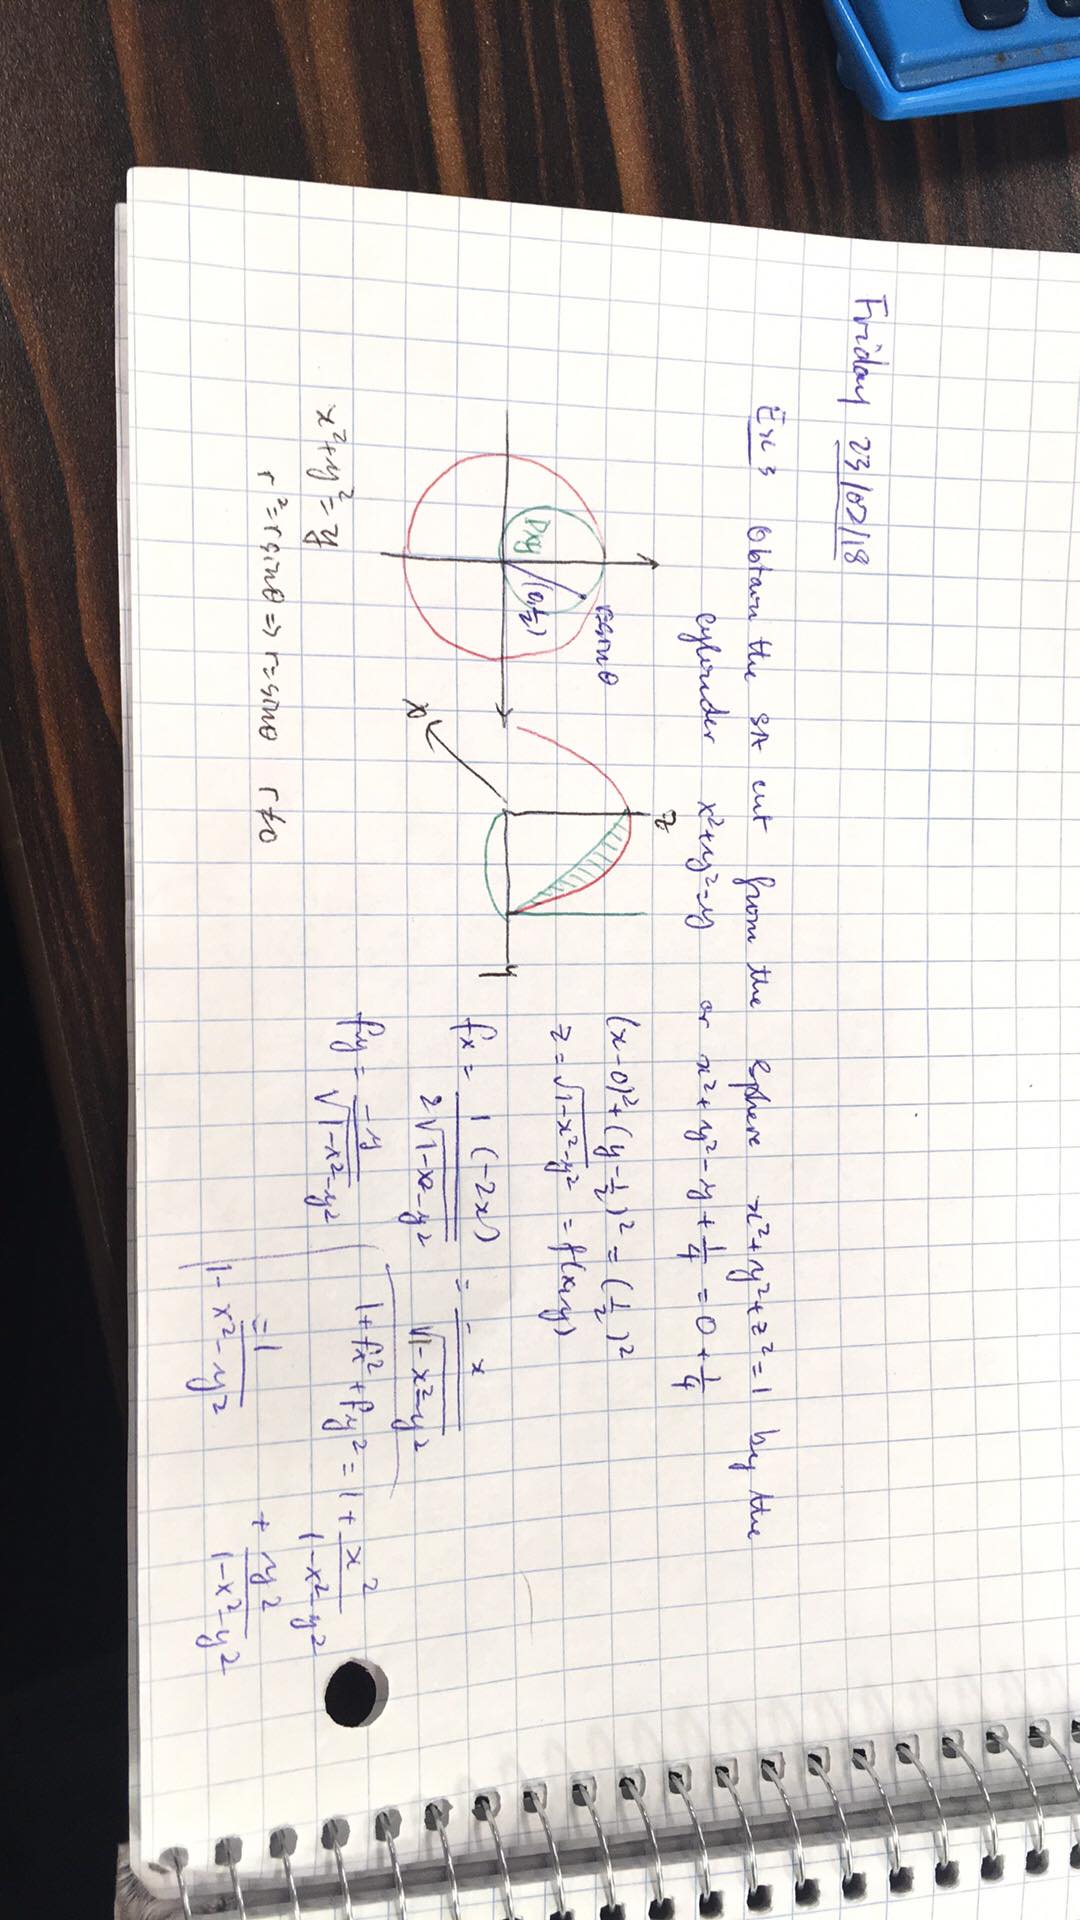 Friday 23/02/18
Ex 3 Obtain the SA cut from the sphere x²+y²+z²=1 by the
cylinder x²+y²=y or x²+y²-y+1/4=0+1/4
z
r=sinθ
Dxy
(0,1/2)
y
x
(x-0)²+(y-1/2)²=(1/2)²
z=√1-x²-y² = f(x,y)
fx = 1 (-2x) / 2√1-x²-y² = -x / √1-x²-y²
fy = -y / √1-x²-y²
1+fx²+fy² = 1 + x² / 1-x²-y²
+ y² / 1-x²-y²
= 1 / 1-x²-y²
x²+y²=y
r²=rsinθ ⇒ r=sinθ r≠0